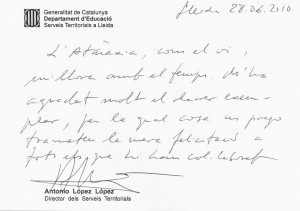 Generalitat de Catalunya
Departament d'Educació
Serveis Territorials a Lleida
Lleida 28.06.2010
L'Ataràxia, com el vi,
millora amb el temps. M'ha
agradat molt el darrer exem-
plar, per la qual cosa us prego
trameteu la meva felicitació a
tots els que hi han col·laborat
Antonio López López
Director dels Serveis Territorials